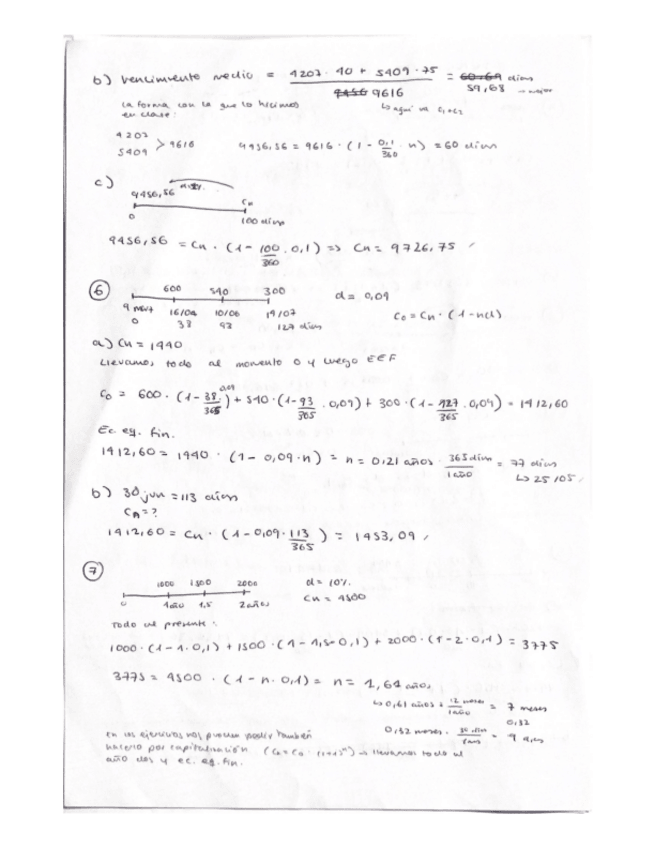 b) vencimiento medio = 4207 · 40 + 5409 · 75 / 9616 = 60,69 días
59,68 → mejor
↳ aquí va C1+C2
La forma con la que lo hicimos
en clase:
4207
5409 > 9616
9456,56 = 9616 · (1 - 0,1/360 · n) = 60 días
c)
9456,56 Cn
0 100 días
9456,56 = Cn · (1 - 100/360 · 0,1) => Cn = 9726,75
6
600 540 300 d = 0,09
9 may 16/04 10/06 14/07 C0 = Cn · (1 - nd)
0 38 93 127 días
a) Cn = 1440
Llevamos todo al momento 0 y luego EEF
C0 = 600 · (1 - 38/365 · 0,09) + 540 · (1 - 93/365 · 0,09) + 300 · (1 - 127/365 · 0,09) = 1412,60
Ec eq. fin.
1412,60 = 1440 · (1 - 0,09 · n) = n = 0,21 años · 365 días/1 año = 77 días
↳ 25/05
b) 30 jun = 113 días
CA = ?
1412,60 = Cn · (1 - 0,09 · 113/365) = 1453,09
7
1000 1500 2000 d = 10%
0 1 año 1,5 2 años Cn = 4500
Todo al presente:
1000 · (1 - 1 · 0,1) + 1500 · (1 - 1,5 · 0,1) + 2000 · (1 - 2 · 0,1) = 3775
3775 = 4500 · (1 - n · 0,1) = n = 1,61 años
↳ 0,61 años · 12 meses/1 año = 7 meses
0,32
0,32 meses · 30 días/1 mes = 9 días
En los ejercicios nos pueden pedir también
hacerlo por capitalización (Cn = C0 · (1+i)^n) → llevamos todo al
año dos y ec. eq. fin.